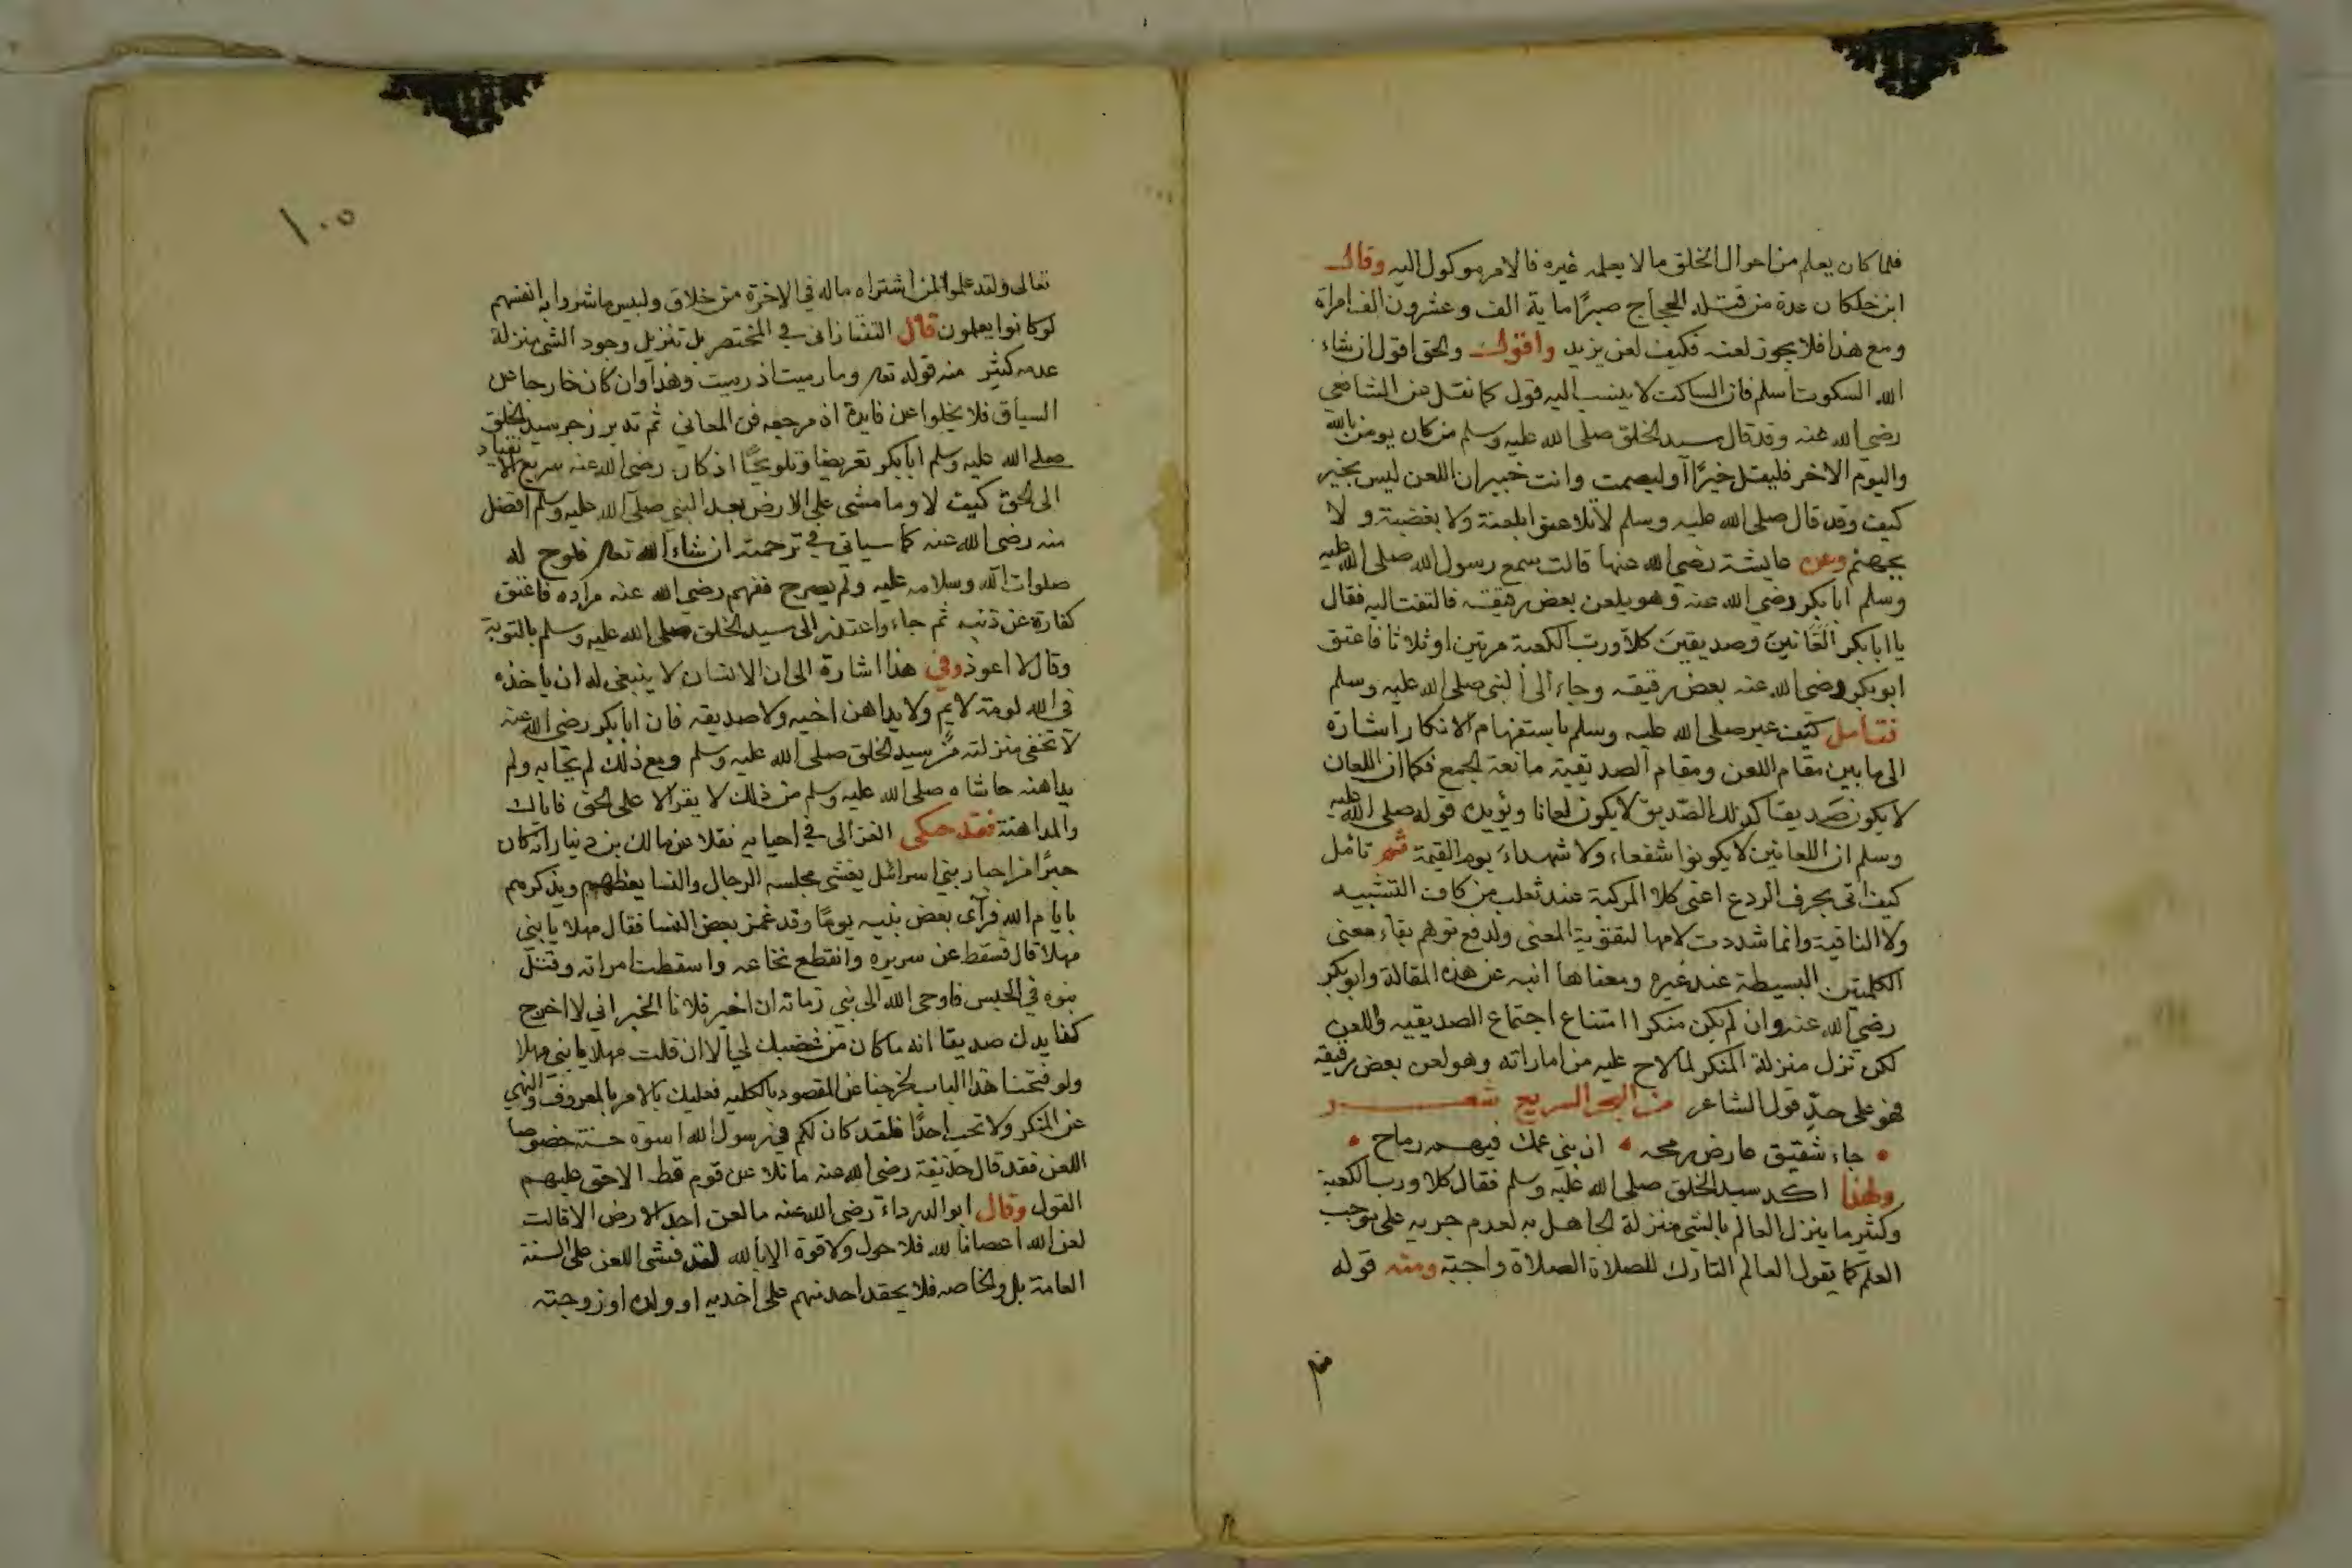 فلما كان يعلم من احوال الخلق ما لا يعلمه غيره فالامر موكول اليه وقال
ابن خلكان عدة من قتله الحجاج صبرًا ماية الف وعشرون الف امراة
ومع هذا فلا يجوز لعنه فكيف لعن يزيد واقول والحق اقول ان شاء
الله السكوت اسلم فان الساكت لا ينسب اليه قول كما نقل عن الشافعي
رضي الله عنه وقد قال سيد الخلق صلى الله عليه وسلم من كان يومن بالله
واليوم الاخر فليقل خيرًا او ليصمت وانت خبير ان اللعن ليس بخير
كيف وقد قال صلى الله عليه وسلم لا تلاعنوا بلعنة ولا بغضبه ولا
بجهنم وعن عايشة رضي الله عنها قالت سمع رسول الله صلى الله عليه
وسلم ابا بكر رضي الله عنه وهو يلعن بعض رقيقه فالتفت اليه فقال
يا ابا بكر العّانين وصديقين كلا ورب الكعبة مرتين او ثلاثا فاعتق
ابو بكر رضي الله عنه بعض رقيقه وجاء الى النبي صلى الله عليه وسلم
فتأمل كيف عبر صلى الله عليه وسلم باستفهام الانكار اشارة
الى ما بين مقام اللعن ومقام الصديقية مانعة الجمع فكما ان اللعان
لا يكون صديقا كذلك الصّديق لا يكون لعانا ويؤيده قوله صلى الله عليه
وسلم ان اللعانين لا يكونوا شفعاء ولا شهداء يوم القيمة ثم تامل
كيف اتى بحرف الردع اعنى كلا المركبة عند ثعلب من كاف التشبيه
ولا النافية وانما شددت لامها لتقوية المعنى ولدفع توهم بقاء معنى
الكلمتين البسيطة عند غيره ومعناها انبه عن هذه المقالة وابو بكر
رضي الله عنه وان لم يكن منكرا امتناع اجتماع الصديقيه واللعن
لكن نزل منزلة المنكر لما لاح عليه من اماراته وهو لعن بعض رقيقه
فهو على حدّ قول الشاعر من البحر السريع شعر
جاء شقيق عارض رمحه ان بني عمك فيهم رماح
ولهذا اكد سيد الخلق صلى الله عليه وسلم فقال كلا ورب الكعبة
وكثير ما ينزل العالم بالشي منزلة الجاهل به لعدم جريه على موجب
العلم كما يقول العالم التارك للصلاة الصلاة واجبة ومنه قوله
١٠٥
تعالى ولقد علموا لمن اشتراه ماله في الاخرة من خلاق ولبيس ما شروا به انفسهم
لو كانوا يعلمون قال التفتازانى في المختصر بل تنزيل وجود الشي منزلة
عدمه كثير منه قوله تعم وما رميت اذ رميت وهذا وان كان خارجا عن
السياق فلا يخلوا عن فايدة اذ مرجعه فن المعاني ثم تدبر زجر سيد الخلق
صلى الله عليه وسلم ابا بكر تعريضا وتلويحًا اذ كان رضي الله عنه سريع الانقياد
الى الحق كيف لا وما مشى على الارض بعد النبي صلى الله عليه وسلم افضل
منه رضي الله عنه كما سياتي في ترجمته ان شاء الله تعم فلوح له
صلوات الله وسلامه عليه ولم يصرح ففهم رضي الله عنه مراده فاعتق
كفارة عن ذنبه ثم جاء واعتذر الى سيد الخلق صلى الله عليه وسلم بالتوبة
وقال لا اعوذ وفي هذا اشارة الى ان الانسان لا ينبغى له ان ياخذه
في الله لومة لايم ولا يداهن اخيه ولا صديقه فان ابا بكر رضي الله عنه
لا تخفى منزلته من سيد الخلق صلى الله عليه وسلم ومع ذلك لم يحابه ولم
يداهنه حاشاه صلى الله عليه وسلم من ذلك لا يقر الا على الحق فاياك
والمداهنة فقد حكى الغزالى في احيايه نقلا عن مالك بن دينار انه كان
حبرًا من احبار بني اسرائيل يغشى مجلسه الرجال والنسا يعظهم ويذكرهم
بايام الله فرأى بعض بنيه يومًا وقد غمز بعض النسا فقال مهلا يا بني
مهلا قال فسقط عن سريره وانقطع نخاعه واسقطت امراته وقتل
بنوه في الجيش فاوحى الله الى نبي زمانه ان اخبر فلانا الخبر اني لا اخرج
صديقا انه ما كان من غضبك لي الا ان قلت مهلا يا بني مهلا
ولو فتحنا هذا الباب لخرجنا عن المقصود بالكليه فعليك بالامر بالمعروف والنهي
عن المنكر ولا تحب احدًا فلقد كان لكم في رسول الله اسوة حسنة خصوصا
اللعن فقد قال حذيفة رضي الله عنه ما تلاعن قوم قط الا حق عليهم
القول وقال ابو الدرداء رضي الله عنه ما لعن احد الارض الا قالت
لعن الله اعصانا لله فلا حول ولا قوة الا بالله لقد فشى اللعن على السنة
العامة بل والخاصه فلا يحقد احد منهم على اخديه او ولده او زوجته